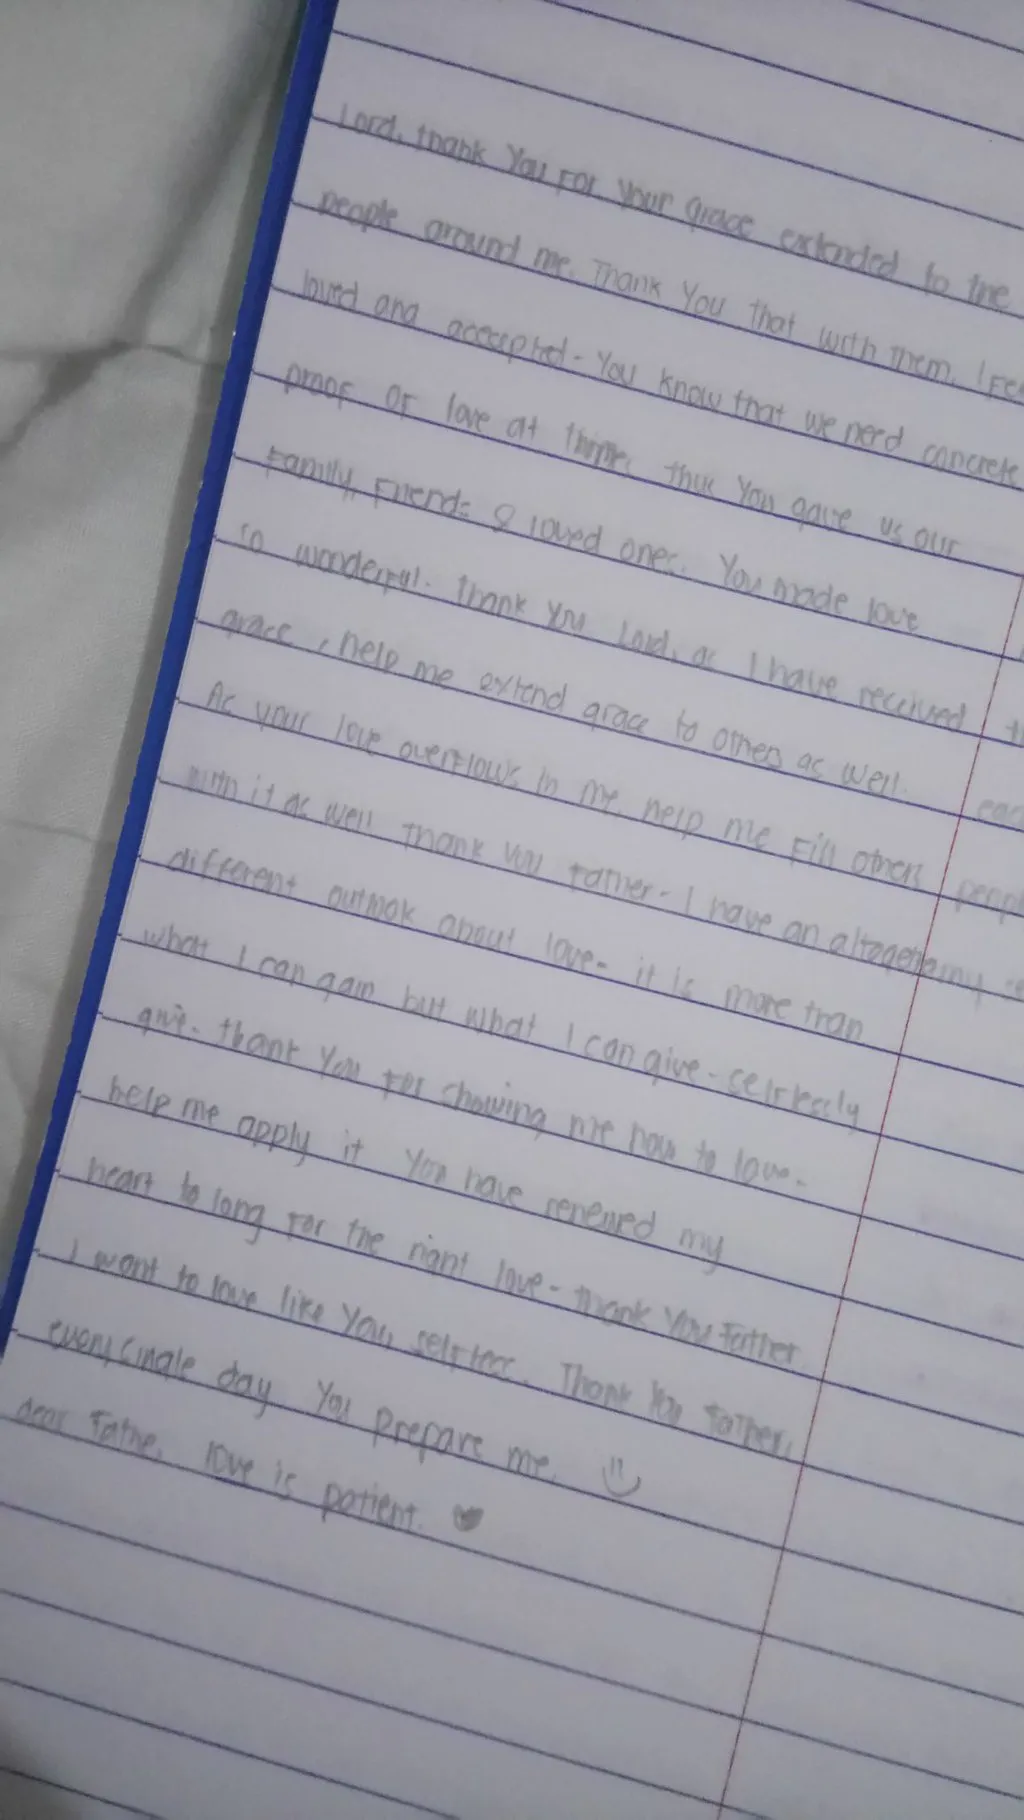 Lord, thank You for Your grace extended to the
people around me. Thank You that with them, I fe
loved and accepted - You know that we need concrete
proof of love at times, thus You gave us our
family, friends & loved ones. You made love
so wonderful. Thank You Lord, as I have received
grace, help me extend grace to others as well.
As your love overflows in me, help me fill others
with it as well Thank You Father - I have an altogether
different outlook about love - it is more than
what I can gain but what I can give - selflessly
give. thank You for showing me how to love.
help me apply it You have renewed my
heart to long for the right love - thank You Father
I want to love like You, selfless. Thank You Father,
every single day You prepare me.
dear Father, love is patient.